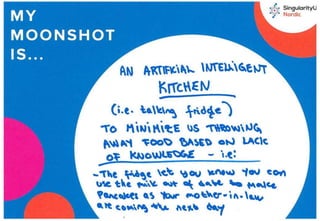 MY
MOONSHOT
IS...
SingularityU
Nordic
AN ARTIFICIAL INTELLIGENT
KITCHEN
(i.e. talking fridge)
TO MINIMIZE US THROWING
AWAY FOOD BASED ON LACK
OF KNOWLEDGE - i.e:
- The fridge let you know you can
use the milk out of date to make
Pancakes as your mother-in-law
are coming the next day